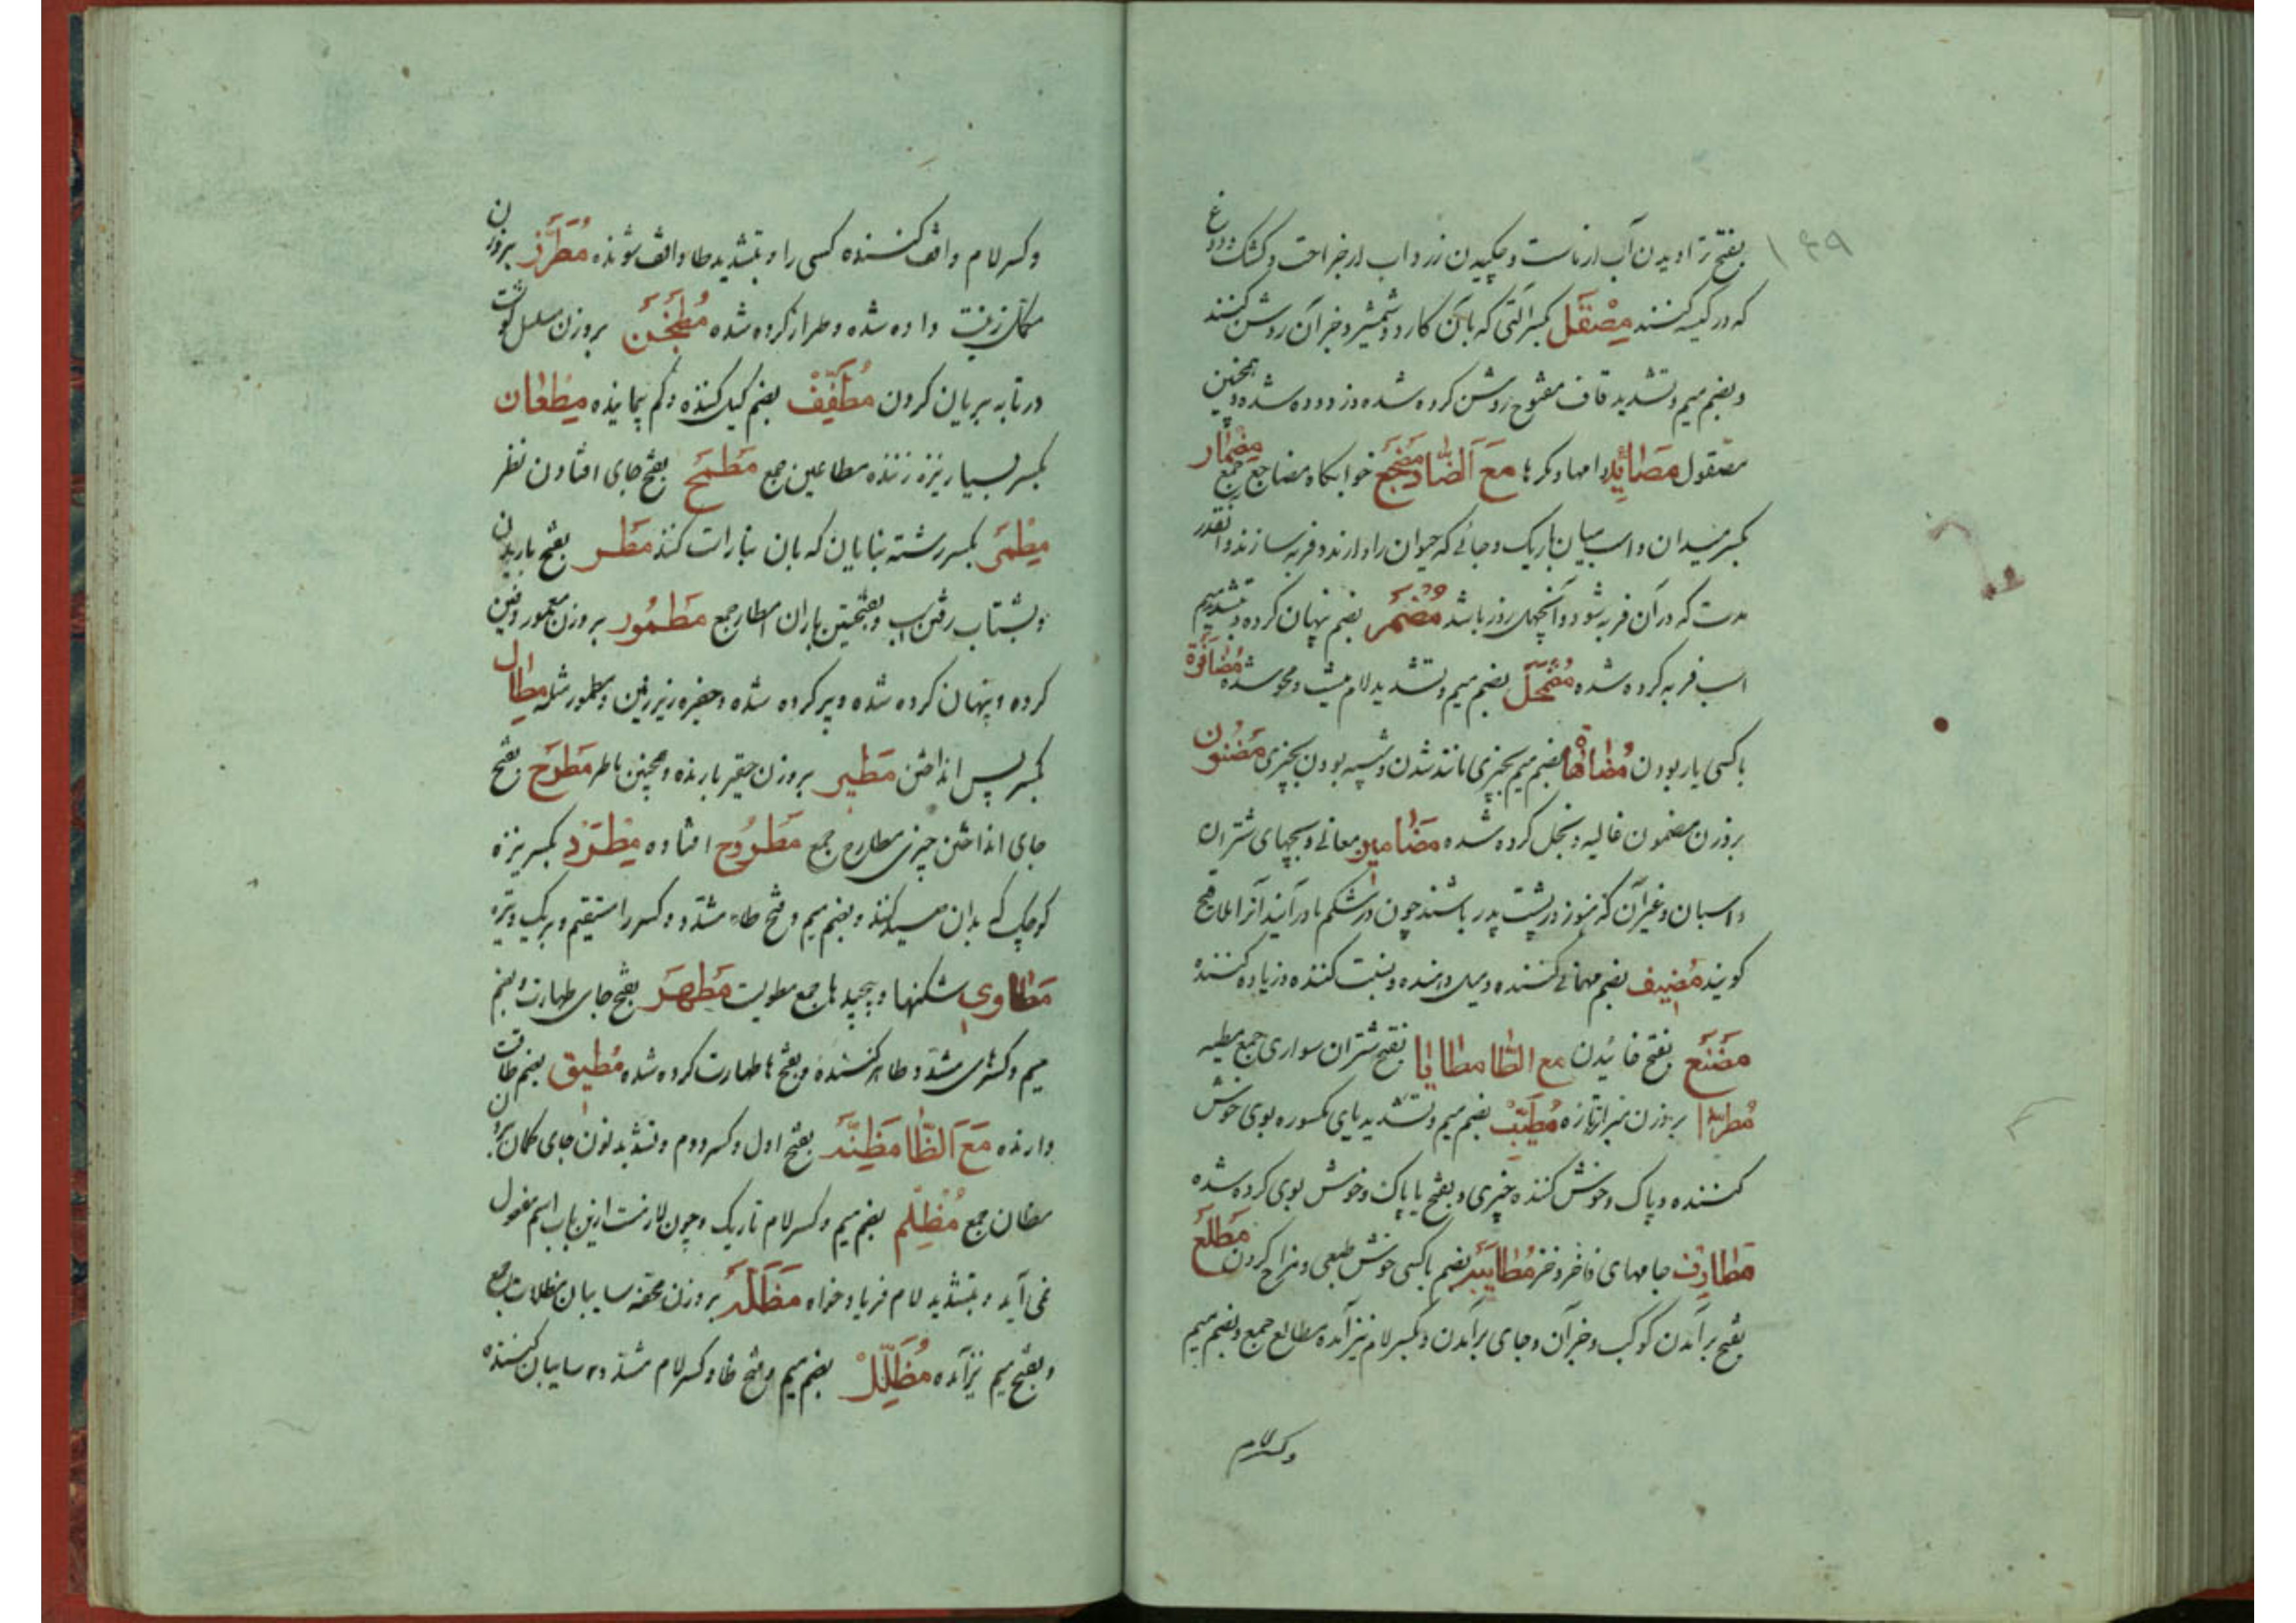 ۱۴۹
بفتح تراویدن آب از ماست و چکیدن زرداب از جراحت و کشک و دوغ
که در کیسه کنند مِصْقَل بکسر آلتی که بآن کارد و شمشیر و خبر آن روشن کنند
و بضم میم و تشدید قاف مفتوح روشن کرده شده و زدوده شده و همچنین
مصقول مَصَائِد دامها و مکرها مَعَ الضَّاد مَضْجَع خوابگاه مضاجع جمع مِضْمَار
بکسر میدان و اسب میان باریک و جائی که حیوان را دارند و فربه سازند و آنقدر
مدت که در آن فربه شود و آن چهل روز باشد مُضْمَر بضم پنهان کرده و بتشدید میم
اسب فربه کرده شده مُضْمَحِلّ بضم میم و تشدید لام نیست و محو شده مُضَافَرَة
با کسی یار بودن مُضَاهَاة بضم میم بچیزی مانند شدن و شبیه بودن بچیزی مَضْنُون
بروزن مضمون غالیه و بخل کرده شده مَضَامِین معانی و بچهای شتران
و اسبان و غیر آن که هنوز در پشت پدر باشند چون در شکم مادر آیند آنرا ملاقیح
کویند مُضِیف بضم مهمانی کننده و میل دهنده و نسبت کننده و زیاده کننده
مَضَنَع بفتح خائیدن مع الطَّا مَطَایَا بفتح شتران سواری جمع مطیه
مُطَرَّا بروزن مبرا تازه مُطَیِّب بضم میم و تشدید یای مکسوره بوی خوش
کننده و پاک و خوش کننده چیزی و بفتح یا پاک و خوش بوی کرده شده
مَطَارِف جامهای فاخر و خز مُطَایَبَه بضم با کسی خوش طبعی و مزاح کردن مَطْلَع
بفتح برآمدن کوکب و خبر آن و جای برآمدن و بکسر لام نیز آمده مطالع جمع و بضم میم
و کسر لام
و کسر لام واقف کننده کسی را و بتشدید طا واقف شونده مُطَرَّز بروزن
مکلل زینت داده شده و طراز کرده شده مُطَجَّن بروزن مسلسل گوشت
در تابه بریان کردن مُطَفِّف بضم کیل کننده و کم پیماینده مِطْعَان
بکسر بسیار نیزه زننده مطاعین جمع مَطْمَح بفتح جای افتادن نظر
مِطْمَر بکسر رشته بنایان که بان بنا راست کنند مَطَر بفتح باریدن
و بشتاب رفتن اسب و بفتحتین باران امطار جمع مَطْمُور بروزن معمور دفین
کرده و پنهان کرده شده و پر کرده شده و حفیره زیر زمین و مطموره مثله مِطَال
بکسر پس انداختن مَطِیر بروزن حقیر بارنده و همچنین ماطر مَطْرَح بفتح
جای انداختن چیزی مطارح جمع مَطْرُوح افتاده مِطْرَد بکسر نیزه
کوچک که بدان صید کنند و بضم میم و فتح طاء مشدد و کسر را مستقیم و بریک وتیره
مَطَاوِی شکنها و پیچیدها جمع مطویت مَطْهَر بفتح جای طهارت و بضم
میم و کسر های مشدد طاهر کننده و بفتح ها طهارت کرده شده مُطِیق بضم طاقت
دارنده مَعَ الظَّا مَظِنَّه بفتح اول و کسر دوم و تشدید نون جای کمان بردن
مظان جمع مُظْلِم بضم میم و کسر لام تاریک و چون لازمست ازین باب اسم مفعول
نمی آید و بتشدید لام فریاد خواه مَظَلَّه بروزن محفه سایبان مظلات جمع
و بفتح میم نیز آمده مُظَلِّل بضم میم و فتح ظا و کسر لام مشدده سایبان کننده